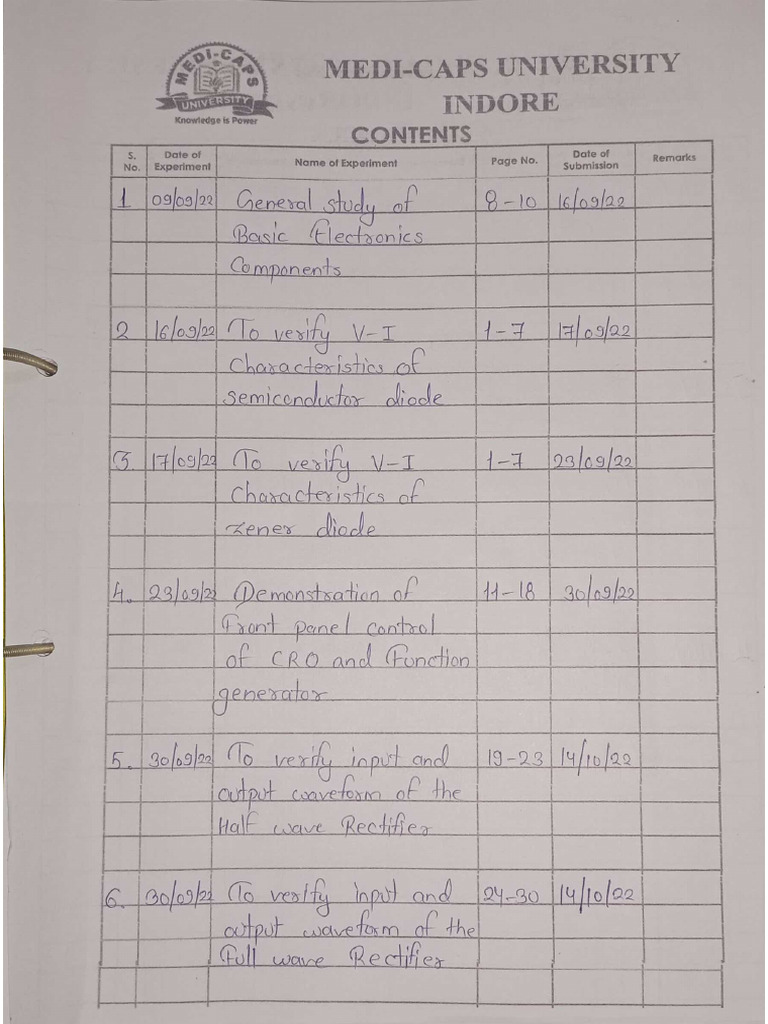 MEDI-CAPS
UNIVERSITY
Knowledge is Power
MEDI-CAPS UNIVERSITY
INDORE
CONTENTS
S. No. Date of Experiment Name of Experiment Page No. Date of Submission Remarks
1 09/09/22 General study of 8-10 16/09/22
Basic Electronics
Components
2 16/09/22 To verify V-I 1-7 17/09/22
Characteristics of
semiconductor diode
3. 17/09/22 To verify V-I 1-7 23/09/22
Characteristics of
zener diode
4. 23/09/22 Demonstration of 11-18 30/09/22
Front panel control
of CRO and Function
generator
5. 30/09/22 To verify input and 19-23 14/10/22
output waveform of the
Half wave Rectifier
6. 30/09/22 To verify input and 24-30 14/10/22
output waveform of the
Full wave Rectifier